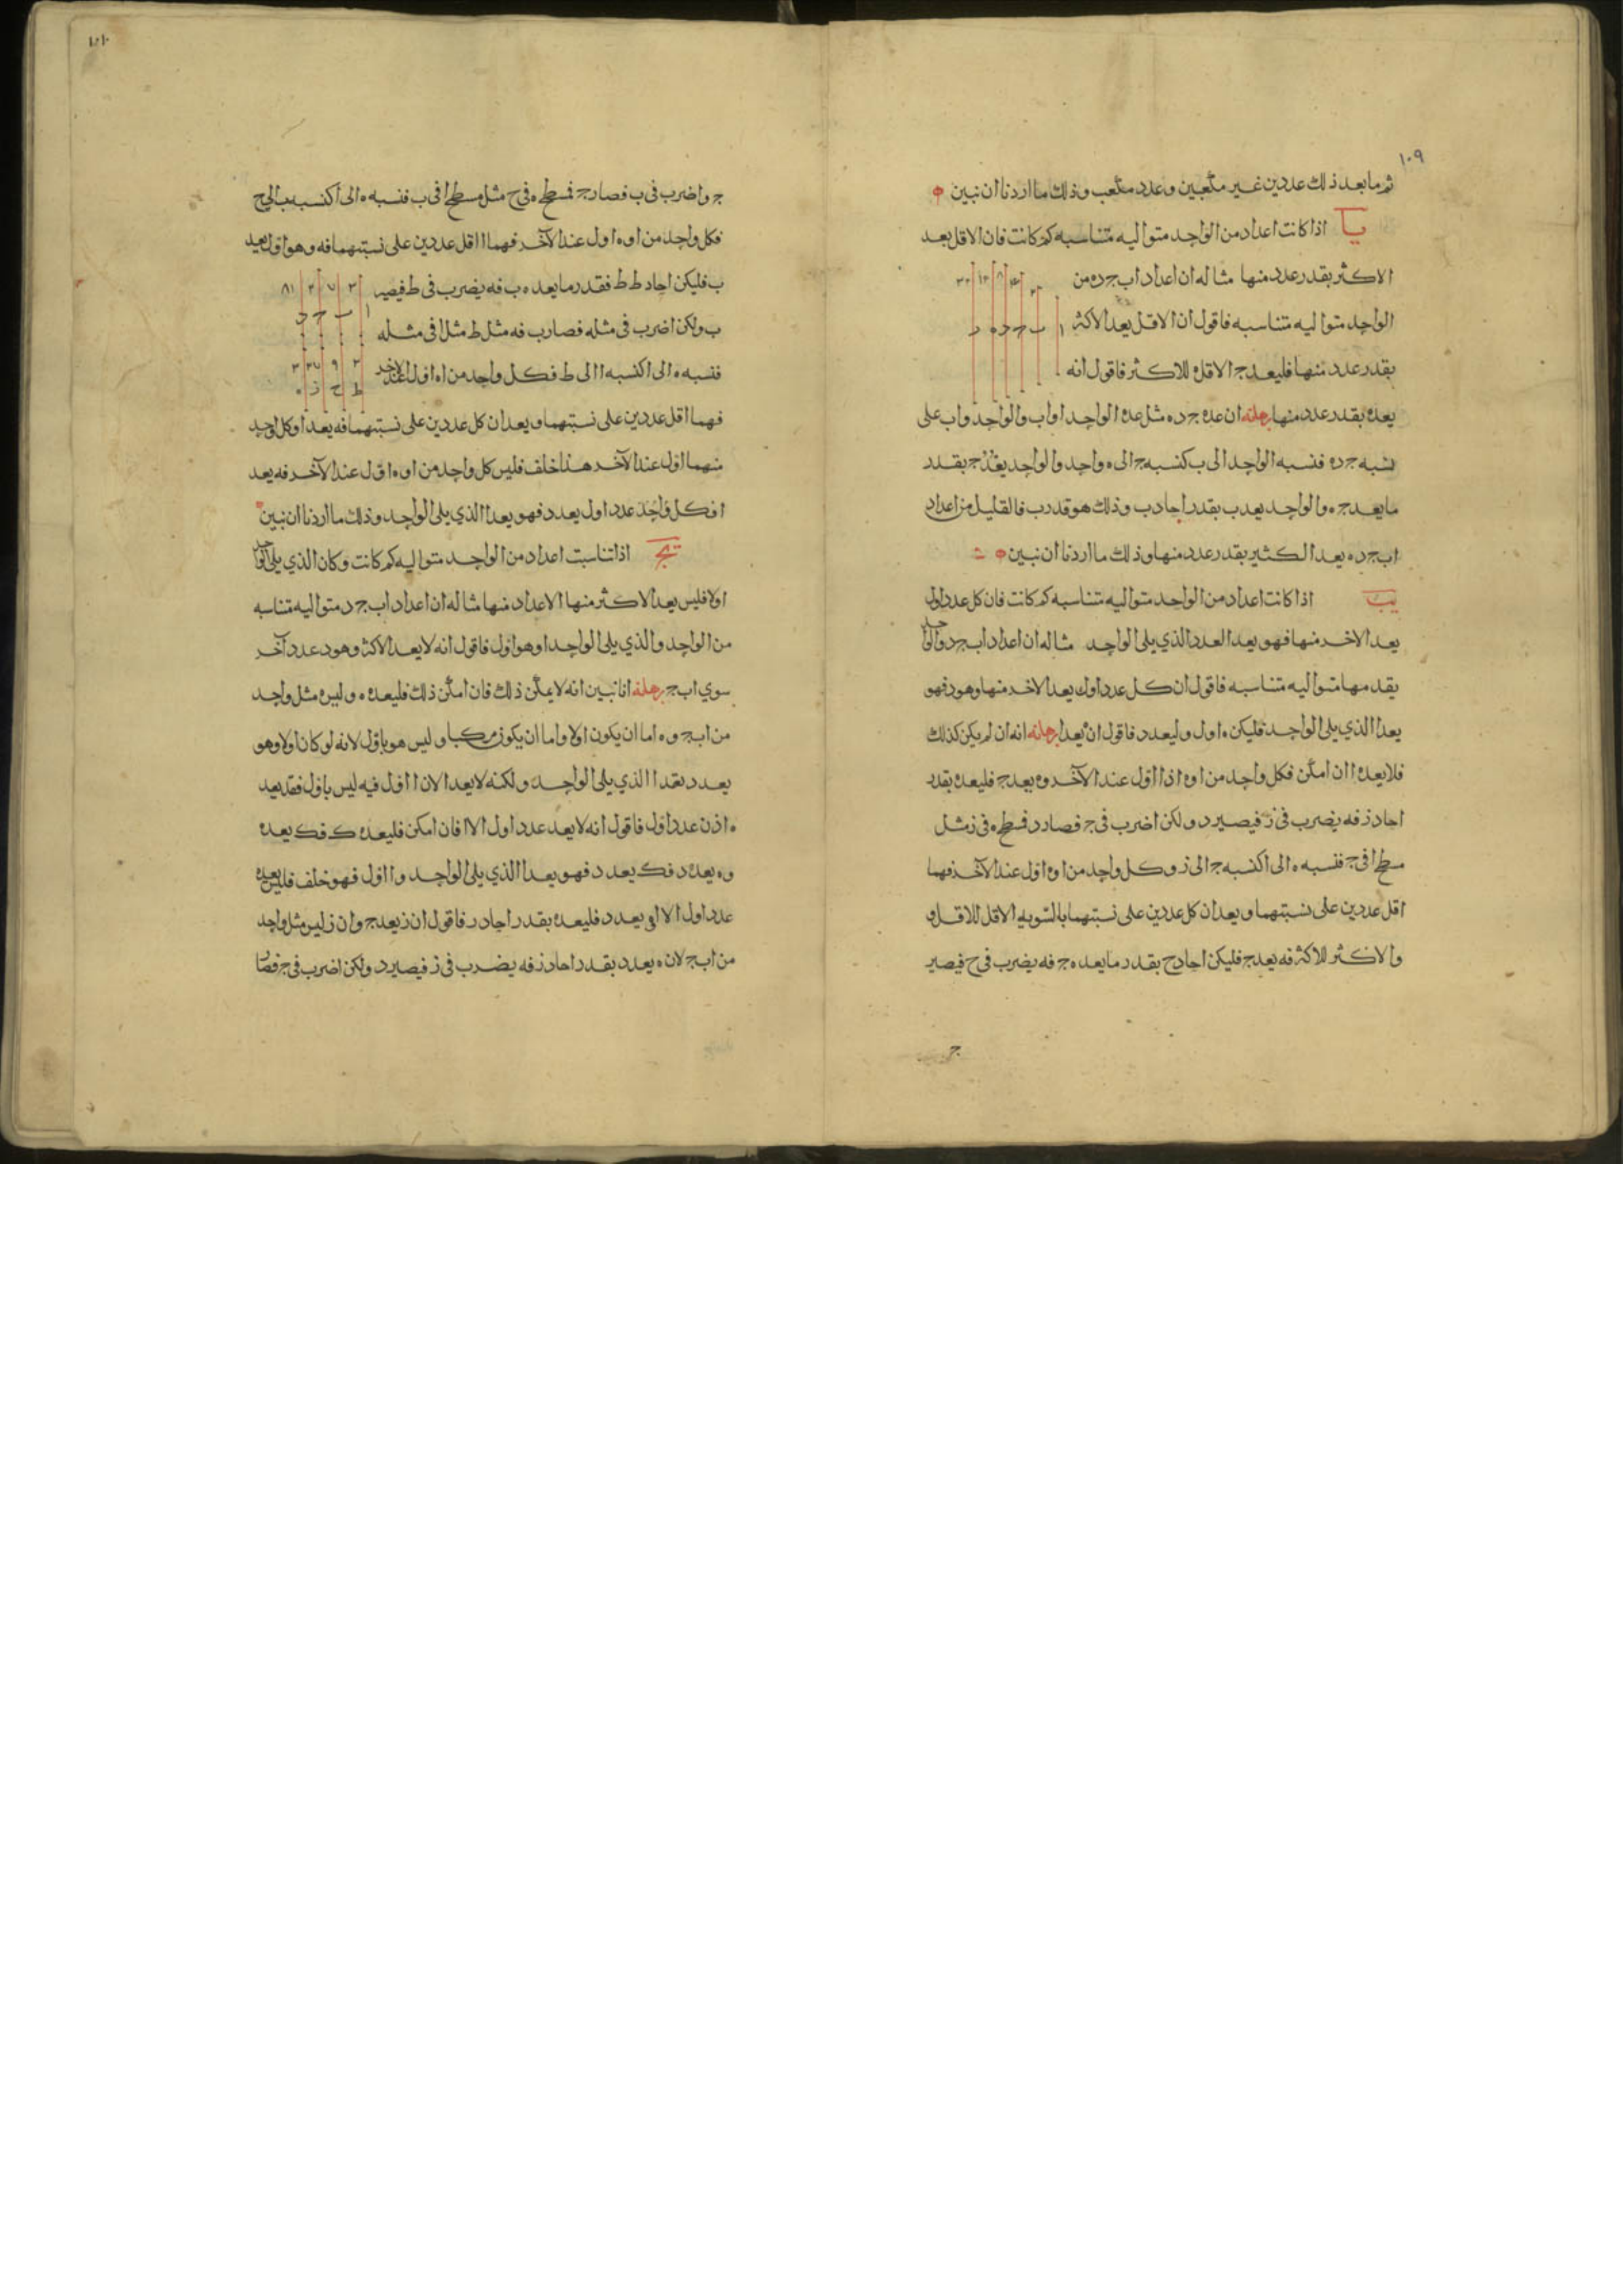 ١٠٩
ثم ما بعد ذلك عددين غير مكعبين وعدد مكعب وذلك ما اردنا ان نبين ه
يا اذا كانت اعداد من الواحد متواليه متناسبه كم كانت فان الاقل يعد
الاكثر بقدر عدد منها مثاله ان اعداد ا ب ج د ه من
الواحد متواليه متناسبه فاقول ان الاقل يعد الاكثر
بقدر عدد منها فليعد ج الاقل للاكثر فاقول انه
يعده بقدر عدد منها برهانه ان عده ج د ه مثل عده الواحد ا و ا ب والواحد و ا ب على
نسبه ج د ه فنسبه الواحد الى ب كنسبه ج الى ه واحد والواحد يعد ج بقدر
ما يعد ج ه والواحد يعد ب بقدر احاد ب وذلك هو قدر ب فالقليل من اعداد
ا ب ج د ه يعد الكثير بقدر عدد منها وذلك ما اردنا ان نبين ه
يب اذا كانت اعداد من الواحد متواليه متناسبه كم كانت فان كل عدد اول
يعد الاخر منها فهو يعد العدد الذي يلى الواحد مثاله ان اعداد ا ب ج د والواحد
يقدمها متواليه متناسبه فاقول ان كل عدد اول يعد الاخر منها وهو د فهو
يعد ا الذي يلى الواحد فليكن ه اول وليعد د فاقول ان ه يعد ا برهانه انه ان لم يكن كذلك
فلا يعد ه ا ان امكن فكل واحد من ا و ه اذا اول عند الآخر و ه يعد ج فليعده بقدر
احاد ز فه يضرب فى ز فيصير د ولكن ا ضرب فى ج فصار د فسطح ه فى ز مثل
سطح ا فى ج فنسبه ه الى ا كنسبه ج الى ز وكل واحد من ا و ه اول عند الآخر فهما
اقل عددين على نسبتهما ويعدان كل عددين على نسبتهما بالسويه الاقل للاقل و
والاكثر للاكثر فه يعد ج فليكن احاد ح بقدر ما يعد ه ج فه يضرب فى ح فيصير
ج
ج و ا ضرب فى ب فصار ج فسطح ه فى ح مثل سطح ا فى ب فنسبه ه الى ا كنسبه ب الى ح
فكل واحد من ا و ه اول عند الآخر فهما اقل عددين على نسبتهما فه وهو اول يعد
ب فليكن احاد ط ط فقدر ما يعد ه ب فه يضرب فى ط فيصير
ب ولكن ا ضرب فى مثله فصار ب فه مثل ط مثل ا فى مثله
فنسبه ه الى ا كنسبه ا الى ط فكل واحد من ا ه اول عند الاخر
فهما اقل عددين على نسبتهما ويعدان كل عددين على نسبتهما فه يعد ا وكل واحد
منهما اول عند الآخر هذا خلف فليس كل واحد من ا و ه اول عند الآخر فه يعد
ا فكل واحد عدد اول يعد د فهو يعد ا الذي يلى الواحد وذلك ما اردنا ان نبين
يج اذا تناسبت اعداد من الواحد متواليه كم كانت وكان الذي يلى الواحد
اولا فليس يعد الاكثر منها الا عداد منها مثاله ان اعداد ا ب ج د متواليه متناسبه
من الواحد والذي يلى الواحد ا وهو اول فاقول انه لا يعد الاكثر وهو د عدد آخر
سوي ا ب ج برهانه انا نبين انه لا يمكن ذلك فان امكن ذلك فليعده ه وليس مثل واحد
من ا ب ج و ه اما ان يكون اولا واما ان يكون مركبا وليس هو باول لانه لو كان اولا وهو
يعد د بعد ا الذي يلى الواحد ولكنه لا يعد ا لان ا اول فيه ليس باول فقد يعد
ه اذن عدد اول فاقول انه لا يعد عدد اول الا ا فان امكن فليعده ك فك يعد ه
و ه يعد د فك يعد د فهو يعد ا الذي يلى الواحد و ا اول فهو خلف فليس يعده
عدد اول الا ا و ه يعد د فليعده بقدر احاد ز فاقول ان ز يعد ج وان ز ليس مثل واحد
من ا ب ج لان ه يعد د بقدر احاد ز فه يضرب فى ز فيصير د ولكن ا ضرب فى ج فصار